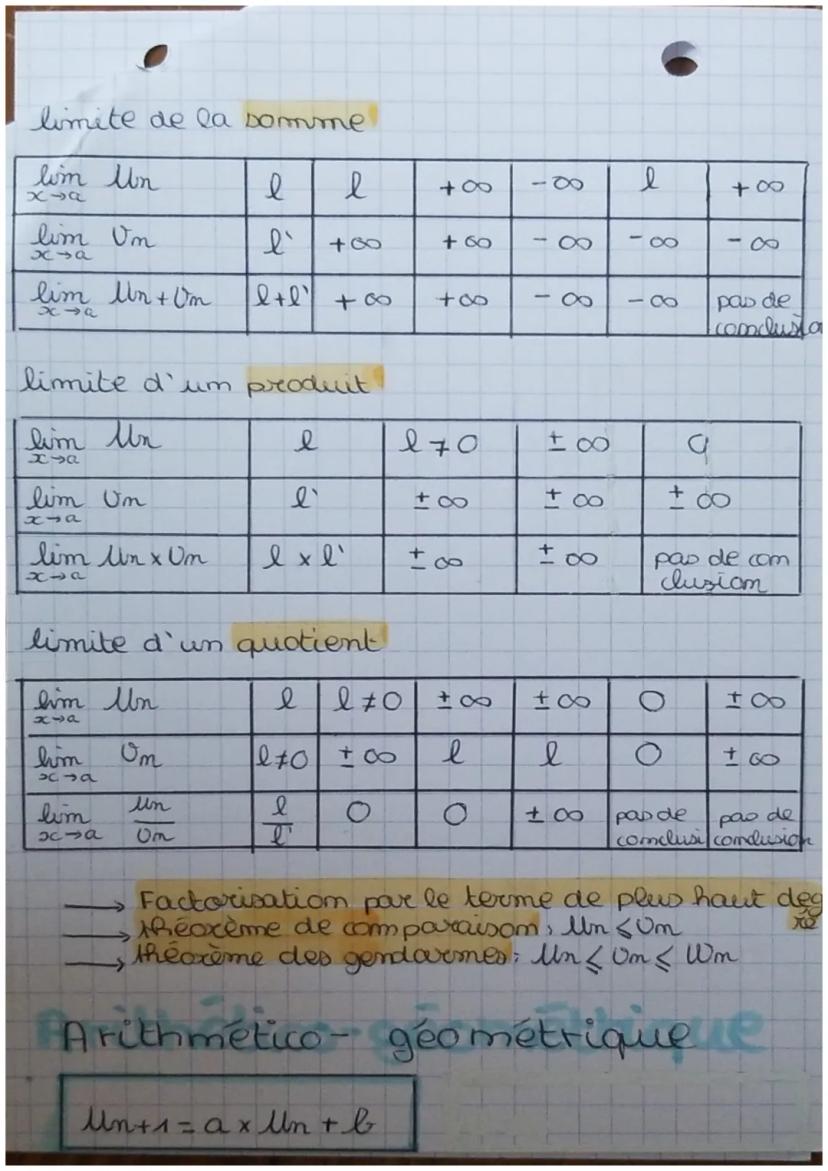 limite de la somme
lim x→a Un | l | l | +∞ | -∞ | l | +∞
lim x→a Vn | l' | +∞ | +∞ | -∞ | -∞ | -∞
lim x→a Un+Vn | l+l' | +∞ | +∞ | -∞ | -∞ | pas de conclusio
limite d'un produit
lim x→a Un | l | l≠0 | ±∞ |
lim x→a Vn | l' | ±∞ | ±∞ | ±∞
lim x→a Un×Vn | l×l' | ±∞ | ±∞ | pas de con clusion
limite d'un quotient
lim x→a Un | l | l≠0 | ±∞ | ±∞ | 0 | ±∞
lim x→a Vn | l≠0 | ±∞ | l | l | 0 | ±∞
lim x→a Un/Vn | l/l' | 0 | 0 | ±∞ | pas de conclusi | pas de conclusion
→ Factorisation par le terme de plus haut deg ré
→ théorème de comparaison, Un ⩽ Vn
→ théorème des gendarmes: Un ⩽ Vn ⩽ Wn
Arithmético-géométrique
Un+1 = a × Un + b